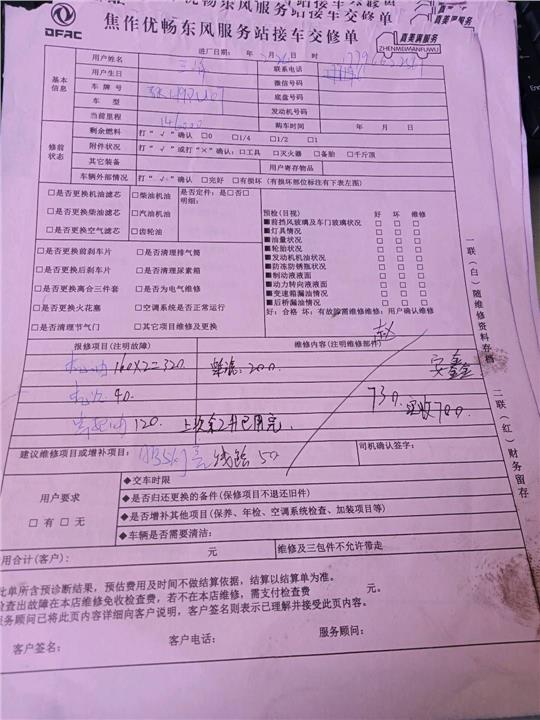 焦作优畅东风服务站接车交修单
DFAC
真美满服务
ZHENMEIMANFUWU
进厂日期: 年 月 日 时
基本信息
用户姓名 联系电话
用户生日 微信号码
车牌号 底盘号码
车 型 发动机号码
当前里程 购车时间 年 月 日
修前状态
剩余燃料 打“√”确认 □0 □1/4 □1/2 □1
附件状况 打“√”或打“×”确认: □工具 □灭火器 □备胎 □千斤顶
其它装备 用户寄存物品
车辆外部情况 打“√”确认 □完好 □有损坏 (有损坏部位标注有下表左图)
□是否更换机油滤芯 □柴油机油 是否定件: 是□否□
□是否更换柴油滤芯 □汽油机油 明细:
□是否更换空气滤芯 □齿轮油
□是否更换前刹车片 □是否清理排气筒
□是否更换后刹车片 □是否清理尿素箱
□是否更换离合三件套 □是否为电气维修
□是否更换火花塞 □空调系统是否正常运行
□是否清理节气门 □其它项目维修及更换
预检(目视) 好 坏 维修
■前挡风玻璃及车门玻璃状况 □ □ □
■灯具情况 □ □ □
■油量状况 □ □ □
■轮胎状况 □ □ □
■发动机机油状况 □ □ □
■防冻防锈瓶状况 □ □ □
■制动液液面 □ □ □
■动力转向液液面 □ □ □
■变速箱漏油情况 □ □ □
■后桥漏油情况 □ □ □
好: 合格 坏: 有故障需维修维修: 用户确认维修
报修项目(注明故障) 维修内容(注明维修部件)
160X2=320. 柴滤: 200. 安鑫
40. 730. 实收700.
120. 上次余2升已用完.
建议维修项目或增补项目: 线绘 50 司机确认签字:
用户要求
□有 □无
◆交车时限
◆是否归还更换的备件(保修项目不退还旧件)
◆是否增补其他项目(保养、年检、空调系统检查、加装项目等)
◆车辆是否需要清洁:
用合计(客户): 元 维修及三包件不允许带走
此单所含预诊断结果, 预估费用及时间不做结算依据, 结算以结算单为准。
检查出故障在本店维修免收检查费, 若不在本店维修, 需支付检查费 元。
服务顾问已将此页内容详细向客户说明, 客户签名则表示已理解并接受此页内容。
客户签名: 客户电话: 服务顾问:
一联(白)随维修资料存档
二联(红)财务留存